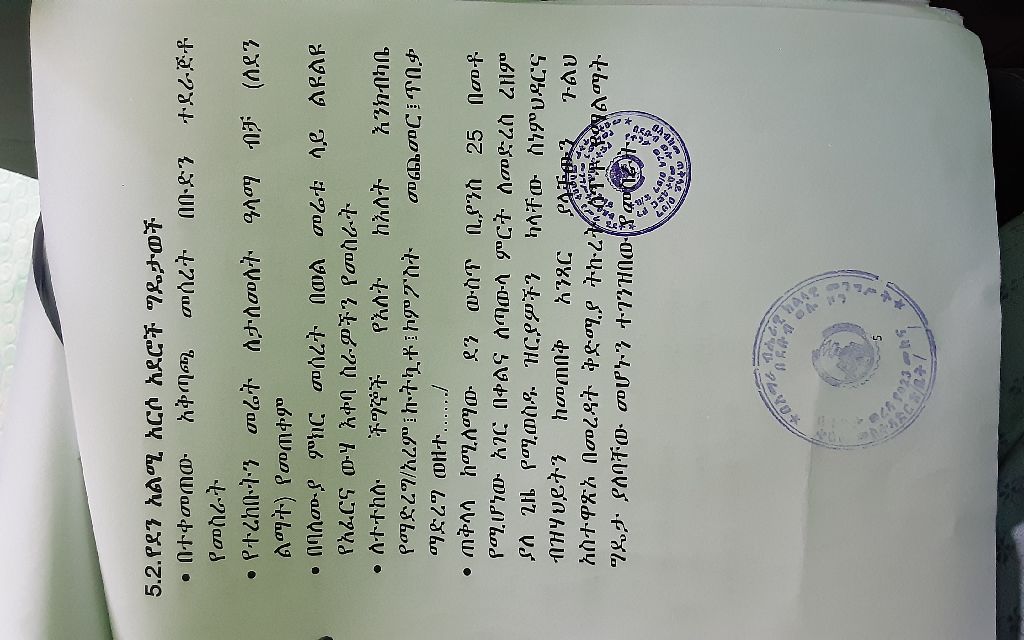 5.2.የደን አልሚ አርሶ አደሮች ግዴታወች
• በተቀመጠው አቅጣጫ መሰረት በቡድን ተደራጅቶ
የመስራት
• የተረከቡትን መሬት ለታለመለት ዓላማ ብቻ (ለደን
ልማት) የመጠቀም
• በባለሙያ ምክር መሰረት በወል መሬቱ ላይ ልዩልዩ
የአፈርና ውሃ እቀባ ስራዎችን የመስራት
• ለተተከሉ ችግኞች የእለት ከእለት እንክብካቤ
የማድረግ/አረም፤ኩትኳቶ፤ኮምፖስት መጨመር፤ጥበቃ
ማድረግ ወዘተ....../
• ጠቅላላ ከሚለማው ደን ውስጥ ቢያንስ 25 በመቶ
የሚሆነው አገር በቀልና ለጣውላ ምርት ለመድረስ ረዘም
ያለ ጊዜ የሚወስዱ ዝርያዎችን ካላቸው ስነምህዳርና
ብዝሃህይትን ከመጠበቅ አንጻር ያላቸውን ጉልህ
አስተዋጽኦ በመረዳት ቅድሚያ ትኩረት
ግዴታ ያለባቸው መሆኑን ተገንዝበው
5